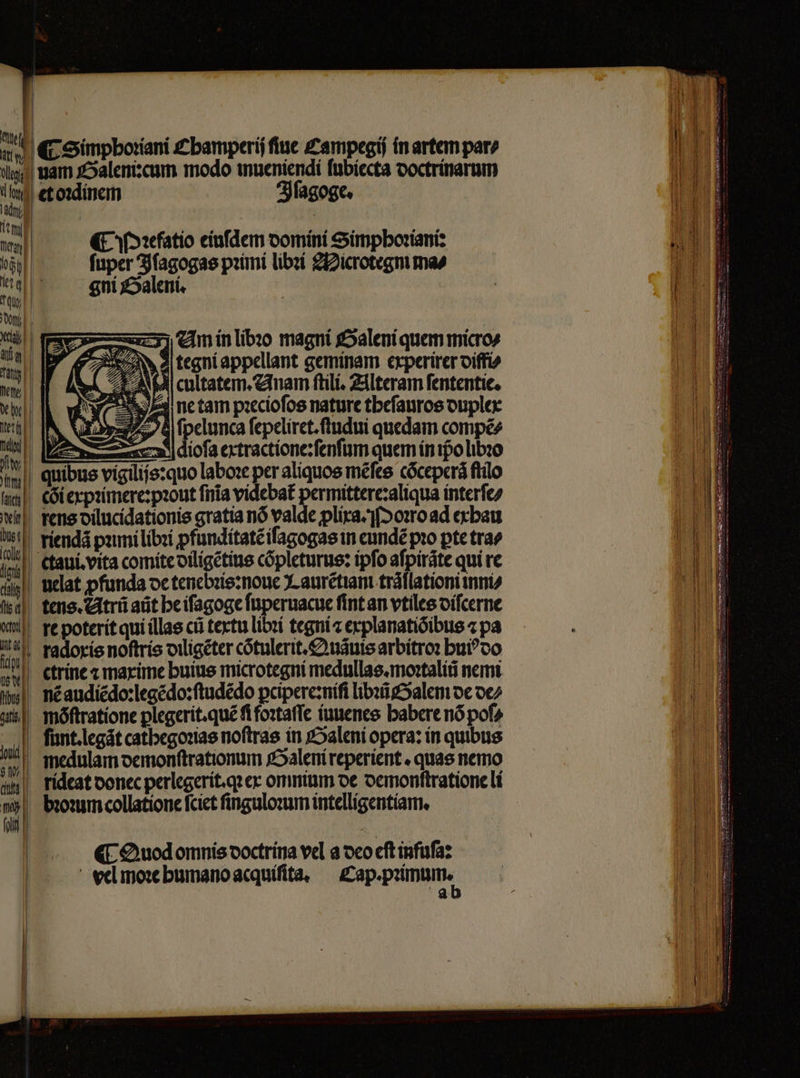 ¶ Simphoriani Champerij siue Campegij in artem par⸗
uam Galeni:cum modo inueniendi subiecta doctrinarum
et ordinem Isagoge.
¶ Prefatio eiusdem domini Simphoriani:
super Isagogas primi libri Microtegni ma⸗
gni Galeni.
Um in libro magni Galeni quem micro⸗
tegni appellant geminam experirer diffi⸗
cultatem. Unam stili. Alteram sententie.
ne tam preciosos nature thesauros duplex
spelunca sepeliret. studui quedam compẽ⸗
diosa extractione:sensum quem in ip̃o libro
quibus vigilijs:quo labore per aliquos mẽses cõceperã stilo
cõi exprimere:prout sñia videbat̃ permittere:aliqua interse⸗
rens dilucidationis gratia nõ valde ꝓlixa. Porro ad exhau
riendã primi libri ꝓfunditatẽ isagogas in eundẽ pro ꝑte tra⸗
ctaui. vita comite diligẽtius cõpleturus: ipso aspirãte qui re
uelat ꝓfunda de tenebris:noue Laurẽtiani trãslationi inni⸗
tens. Utrũ aũt he isagoge superuacue sint an vtiles discerne
re poterit qui illas cũ textu libri tegni ⁊ explanatiõibus ⁊ pa
radoxis nostris diligẽter cõtulerit. Quãuis arbitror huiꝰ do
ctrine ⁊ maxime huius microtegni medullas. mortaliũ nemi
nẽ audiẽdo:legẽdo:studẽdo ꝑcipere:nisi librũ Galeni de de⸗
mõstratione ꝑlegerit. quẽ si fortasse iuuenes habere nõ pos⸗
sunt. legãt cathegorias nostras in Galeni opera: in quibus
medulam demonstrationum Galeni reperient. quas nemo
rideat donec perlegerit. qꝛ ex omnium de demonstratione li
brorum collatione sciet singulorum intelligentiam.
¶ Quod omnis doctrina vel a deo est infusa:
vel more humano acquisita. Cap. primum.
ab